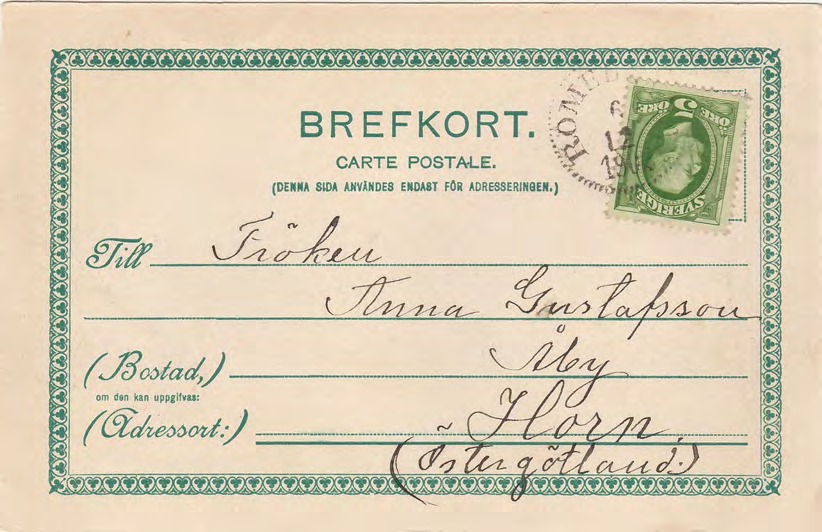 BREFKORT.
CARTE POSTALE.
(DENNA SIDA ANVÄNDES ENDAST FÖR ADRESSERINGEN.)
6
12
5
ÖRE ÖRE
SVERIGE
Till Fröken
Anna Gustafsson
Åby
(Bostad,)
om den kan uppgifvas:
(Adressort:) Horn.
(Östergötland.)